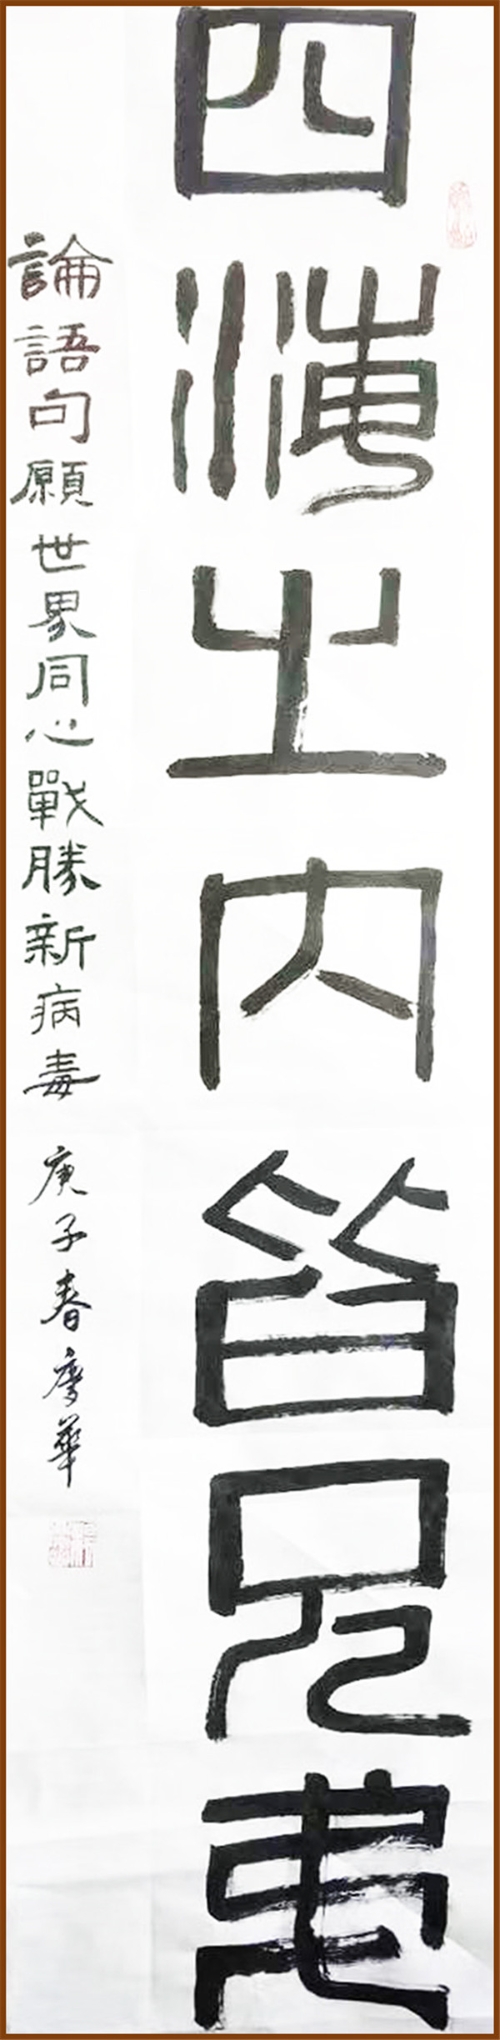 四海之内皆兄弟
論語句願世界同心戰勝新病毒 庚子春廖華